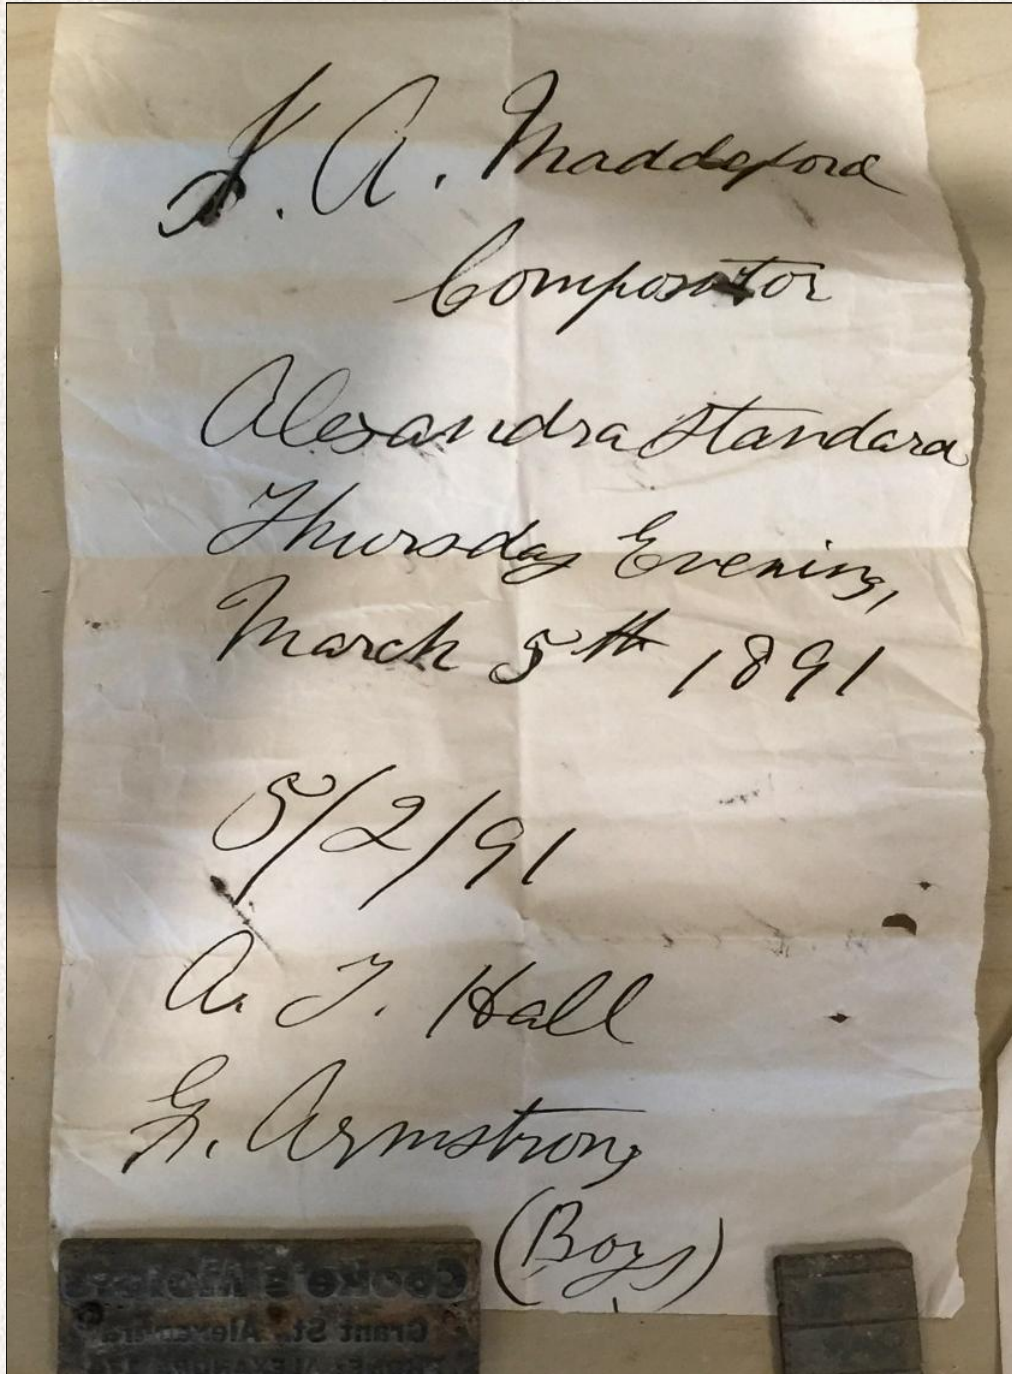 J. A. Maddeford
Compositor
Alexandra Standard
Thursday Evening,
March 5th 1891
5/2/91
A. T. Hall
G. Armstrong
(Boys)
Cooke's Motors
Grant St., Alexandra
PHONE: ALEXANDRA 174